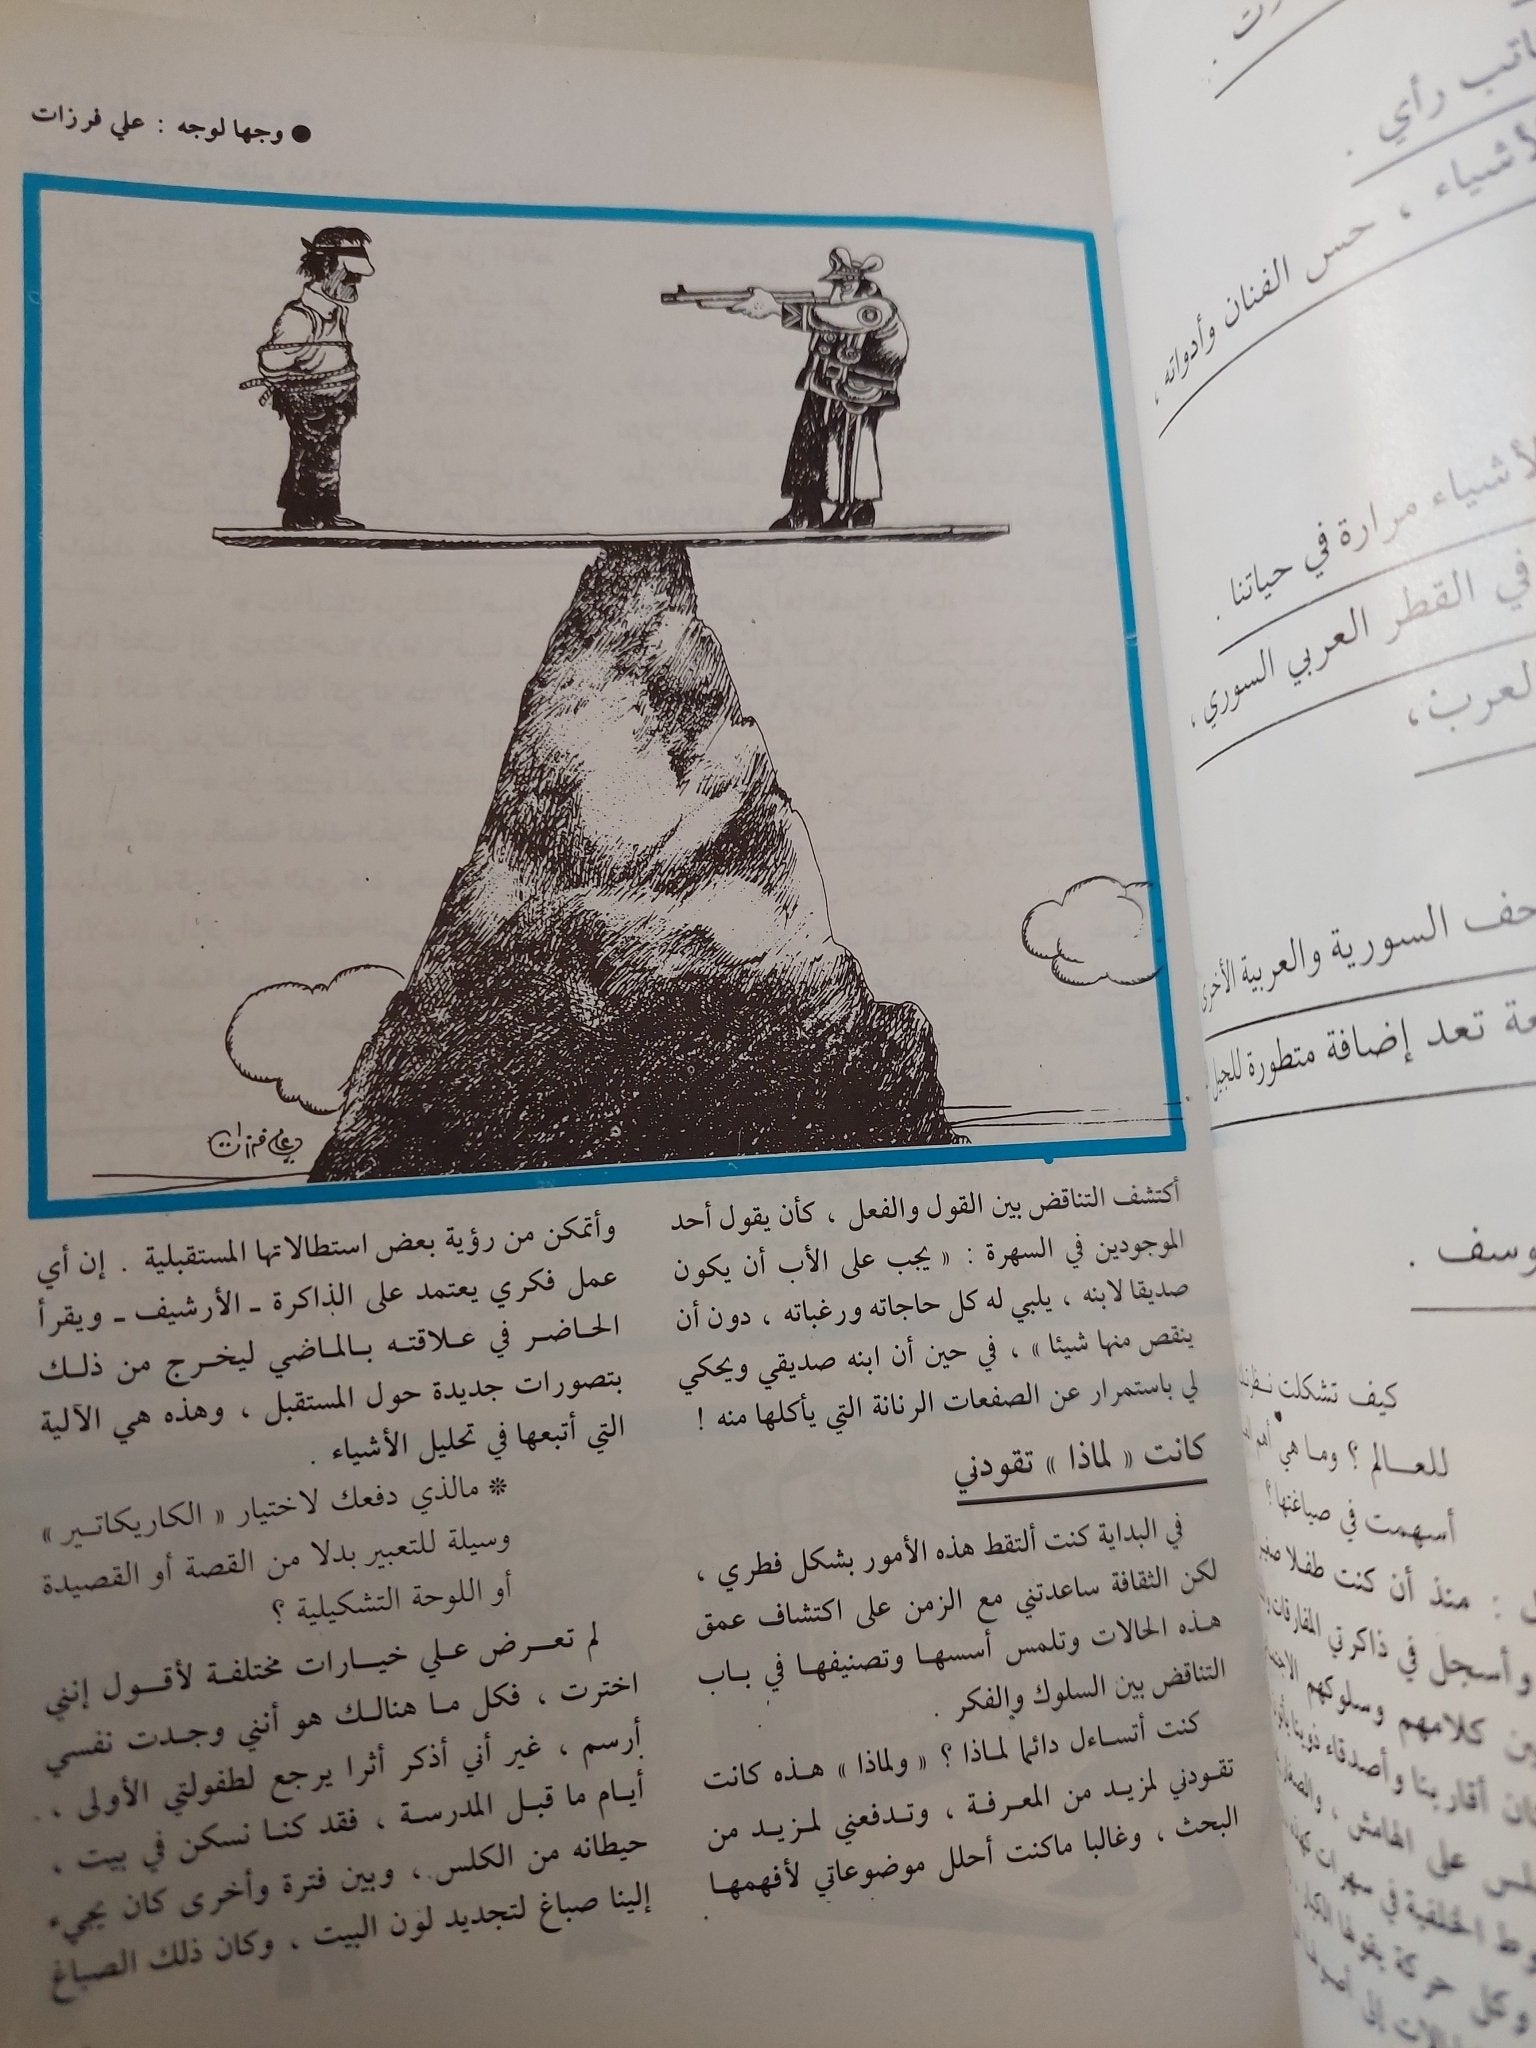 ● وجها لوجه : علي فرزات
علي فرزات
أكتشف التناقض بين القول والفعل ، كأن يقول أحد
الموجودين في السهرة : « يجب على الأب أن يكون
صديقا لابنه ، يلبي له كل حاجاته ورغباته ، دون أن
ينقص منها شيئا » ، في حين أن ابنه صديقي ويحكي
لي باستمرار عن الصفعات الرنانة التي يأكلها منه !
كانت « لماذا » تقودني
في البداية كنت ألتقط هذه الأمور بشكل فطري ،
لكن الثقافة ساعدتني مع الزمن على اكتشاف عمق
هذه الحالات وتلمس أسسها وتصنيفها في باب
التناقض بين السلوك والفكر .
كنت أتساءل دائما لماذا ؟ « ولماذا » هذه كانت
تقودني لمزيد من المعرفة ، وتدفعني لمزيد من
البحث ، وغالبا ماكنت أحلل موضوعاتي لأفهمها
وأتمكن من رؤية بعض استطالاتها المستقبلية . إن أي
عمل فكري يعتمد على الذاكرة ـ الأرشيف ـ ويقرأ
الحاضر في علاقته بالماضي ليخرج من ذلك
بتصورات جديدة حول المستقبل ، وهذه هي الآلية
التي أتبعها في تحليل الأشياء .
* مالذي دفعك لاختيار « الكاريكاتير »
وسيلة للتعبير بدلا من القصة أو القصيدة
أو اللوحة التشكيلية ؟
لم تعرض علي خيارات مختلفة لأقول إنني
اخترت ، فكل ما هنالك هو أنني وجدت نفسي
أرسم ، غير أني أذكر أثرا يرجع لطفولتي الأولى ،
أيام ما قبل المدرسة ، فقد كنا نسكن في بيت ،
حيطانه من الكلس ، وبين فترة وأخرى كان يجيء
إلينا صباغ لتجديد لون البيت ، وكان ذلك الصباغ
رأي .
الأشياء ، حس الفنان وأدواته ،
الأشياء مرارة في حياتنا .
في القطر العربي السوري ،
العرب ،
السورية والعربية الأخرى
تعد إضافة متطورة للجيل
كيف تشكلت
للعالم ؟ وما هي أهم
أسهمت في صياغتها ؟
: منذ أن كنت طفلا
وأسجل في ذاكرتي المفارقات
كلامهم وسلوكهم
أقاربنا وأصدقاء
على الهامش ،
الخلفية في سهرات
وكل حركة